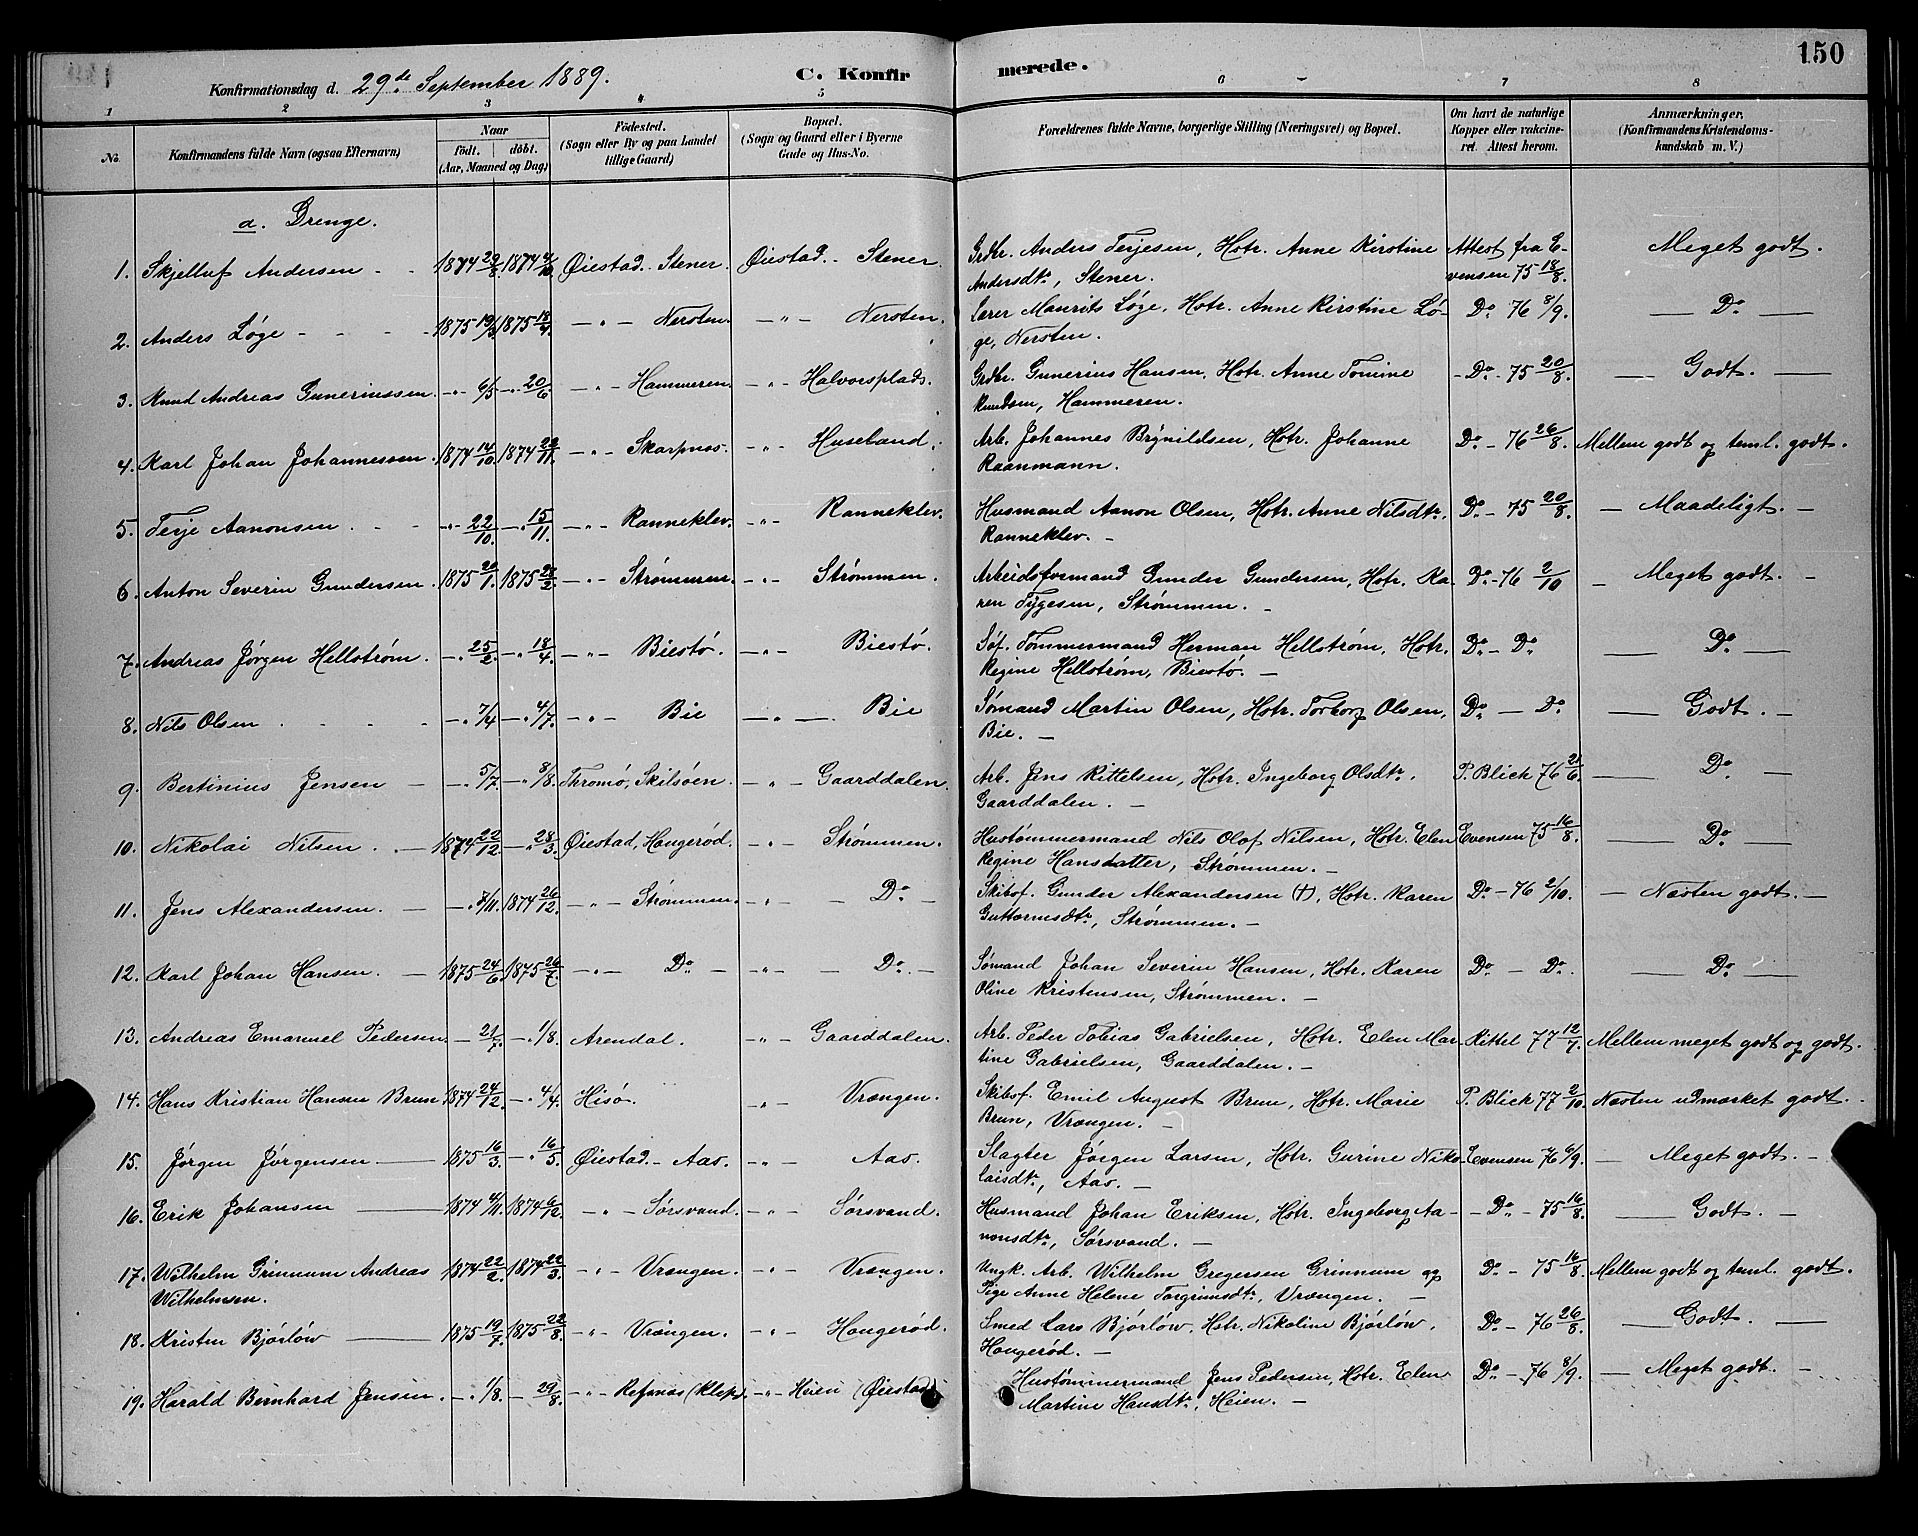 150
Konfirmationsdag d. 29de September 1889. C. Konfir merede.
1 2 3 4 5 6 7 8
No. Konfirmandens fulde Navn (ogsaa Efternavn) Naar födt. döbt. (Aar, Maaned og Dag) Födested. (Sogn eller By og paa Landet tillige Gaard) Bopæl. (Sogn og Gaard eller i Byerne Gade og Hus-No. Forældrenes fulde Navne, borgerlige Stilling (Næringsvei) og Bopæl. Om havt de naturlige Kopper eller vakcineret. Attest herom. Anmærkninger. (Konfirmandens Kristendomskundskab m. V.)
a. Drenge.
1. Skjelluf Andersen 1874 29/8 1874 4/10 Øiestad.. Stener. Øiestad.. Stener. Grdbr. Anders Terjesen, Hstr. Anne Kirstine Attest fra E- Meget godt.
Andersdtr, Stener. vensen 75 18/8.
2. Anders Løge 1875 19/3 1875 18/4 -"- Nersten. -"- Nersten. Lærer Maurits Løge, Hstr. Anne Kirstine Lø- Do 76 8/9. Do
ge, Nersten.
3. Knud Andreas Gunerinssen. -"- 6/5 -"- 20/6 -"- Hammeren. -"- Halvorsplads. Grdbr. Gunerius Hansen, Hstr. Anne Tomine Do - 75 20/8. Godt.
Knudsen, Hammeren.
4. Karl Johan Johannessen. 1874 14/10 1874 22/11. -"- Skarpnes. -"- Huseland. Arb. Johannes Brynildsen, Hstr. Johanne Do - 76 26/8. Mellem godt og teml. godt.
Raanmann.
5. Terje Aanonsen. -"- 22/10. -"- 15/11. -"- Ranneklev. -"- Ranneklev. Husmand Aanon Olsen, Hstr. Anne Nilsdtr. Do - 75 20/8. Maadeligt.
Ranneklev.
6. Anton Severin Gundersen. 1875 20/1. 1875 28/2. -"- Strømmen. -"- Strømmen. Arbeidsformand Gunder Gundersen, Hstr. Ka- Do - 76 2/10 Meget godt.
ren Tygesen, Strømmen.
7. Andreas Jørgen Hellstrøm. -"- 25/2. -"- 18/4. -"- Biestø. -"- Biestø. Søf. Tømmermand Herman Hellstrøm, Hstr. Do - Do Do
Regine Hellstrøm, Biestø.
8. Nils Olsen -"- 7/4 -"- 4/7. -"- Bie -"- Bie Sømand Martin Olsen, Hstr. Torborg Olsen, Do - Do Godt.
Bie.
9. Bertinius Jensen -"- 5/7 -"- 8/8. Thromø, Skilsøen. -"- Gaarddalen. Arb. Jens Kittelsen, Hstr. Ingeborg Olsdtr. P. Blich 76 21/6 Do
Gaarddalen.
10. Nikolai Nilsen. 1874 22/12 -"- 28/3. Øiestad, Hougerød. -"- Strømmen. Hustømmermand Nils Olof Nilsen, Hstr. Elen Evensen 75 16/8. Do
Regine Hansdatter, Strømmen.
11. Jens Alexandersen. -"- 7/11. 1874 26/12. -"- Strømmen. -"- Do Skibsf. Gunder Alexandersen (†), Hstr. Karen Do - 76 2/10. Næsten godt.
Guttormsdtr, Strømmen.
12. Karl Johan Hansen. 1875 24/6 1875 26/7. -"- Do -"- Do Sømand Johan Severin Hansen, Hstr. Karen Do - Do. Do
Oline Kristensen, Strømmen.
13. Andreas Emanuel Pedersen. -"- 21/7. -"- 1/8. Arendal. -"- Gaarddalen. Arb. Peder Tobias Gabrielsen, Hstr. Elen Mar- Kittel 77 12/7. Mellem meget godt og godt.
tine Gabrielsen, Gaarddalen.
14. Hans Kristian Hansen Brun 1874 24/12. -"- 4/4. Hisø. -"- Vrængen. Skibsf. Emil August Brun, Hstr. Marie P. Blich 77 2/10. Næsten udmærket godt.
Brun, Vrængen.
15. Jørgen Jørgensen 1875 16/3. -"- 16/5. Øiestad. - Aas. -"- Aas. Slagter Jørgen Larsen, Hstr. Gurine Niko- Evensen 76 6/9. Meget godt.
laisdtr, Aas.
16. Erik Johansen 1874 4/11. 1874 6/12. -"- Sørsvand. -"- Sørsvand. Husmand Johan Eriksen, Hstr. Ingeborg Aa- Do - 75 16/8. Godt.
nonsdtr, Sørsvand.
17. Wilhelm Grinnum Andreas 1874 22/2. 1874 22/3. -"- Vrængen. -"- Vrængen. Ungk. Arb. Wilhelm Gregersen Grinnum og Do - 75 16/8. Mellem godt og teml. godt.
Wilhelmsen. Pige Anne Helene Torgrimsdtr, Vrængen.
18. Kristen Bjørløw 1875 19/7. 1875 22/8. -"- Vrængen. -"- Hougerød. Smed Lars Bjørløw, Hstr. Nikoline Bjørløw, Do - 76 26/8. Godt.
Hougerød.
19. Harald Bernhard Jensen. -"- 1/8. -"- 29/8. -"- Refsnæs (Klep). -"- Heien (Øiestad) Hustømmermand Jens Pedersen, Hstr. Elen Do - 76 8/9. Meget godt.
Martine Hansdtr, Heien.